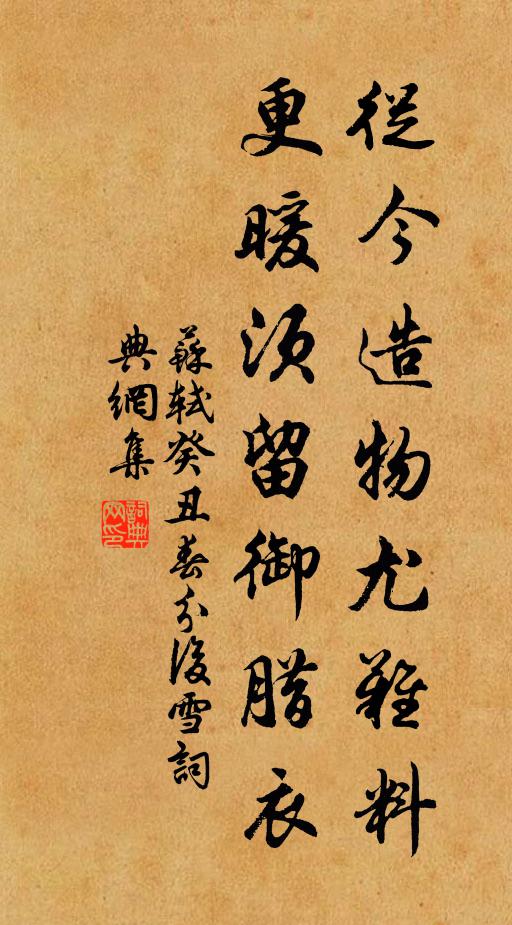 從今造物尤難料
更暖須留御腊衣
蘇軾癸丑春分後雪詞
典網集
詞典網印